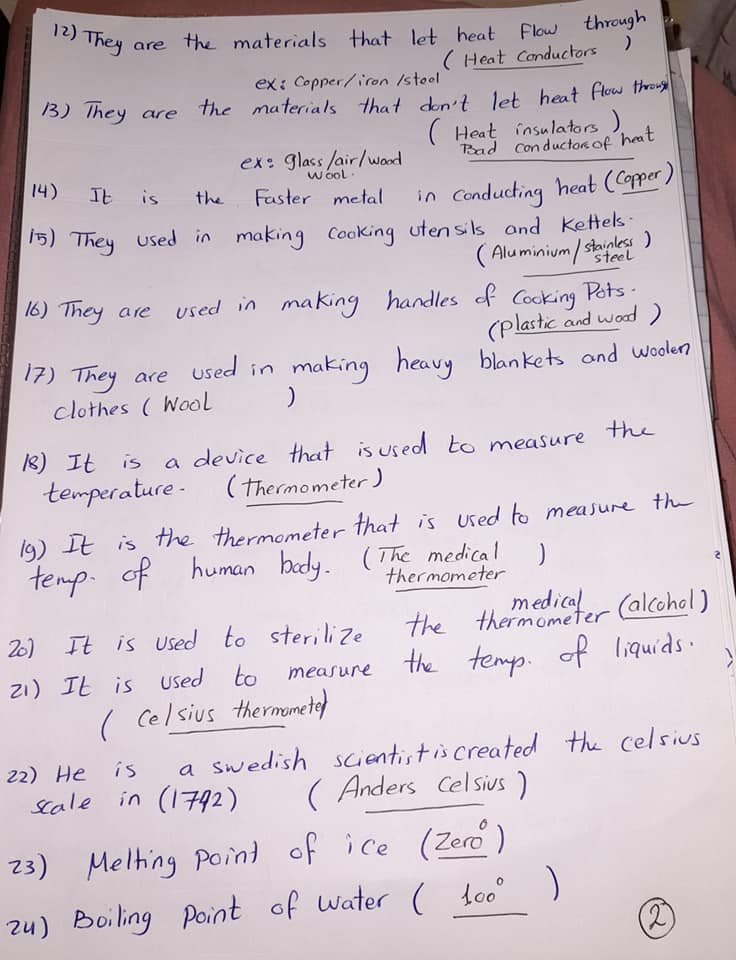 12) They are the materials that let heat Flow through
( Heat Conductors )
ex: Copper/iron/steel
13) They are the materials that don't let heat flow through
( Heat insulators )
Bad conductors of heat
ex: glass/air/wood
wool.
14) It is the Faster metal in conducting heat (Copper)
15) They used in making cooking utensils and Kettels.
( Aluminium/stainless )
steel
16) They are used in making handles of Cooking Pots.
(plastic and wood )
17) They are used in making heavy blankets and woolen
clothes ( Wool )
18) It is a device that is used to measure the
temperature. (Thermometer)
19) It is the thermometer that is used to measure the
temp. of human body. (The medical )
thermometer
medical
20) It is used to sterilize the thermometer (alcohol)
21) It is used to measure the temp. of liquids.
( Celsius thermometer)
22) He is a swedish scientist is created the celsius
scale in (1742) ( Anders Celsius )
23) Melting Point of ice (Zero°)
24) Boiling Point of water ( 100° )
2